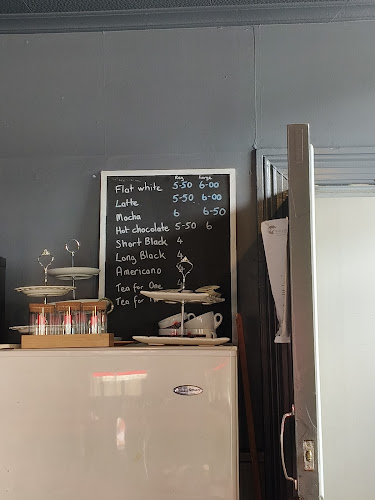 Reg Large
Flat white 5-50 6-00
Latte 5-50 6-00
Mocha 6 6-50
Hot chocolate 5-50 6
Short Black 4
Long Black 4
Americano
Tea for One
Tea for